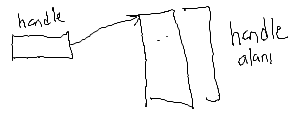 handle
handle
alanı